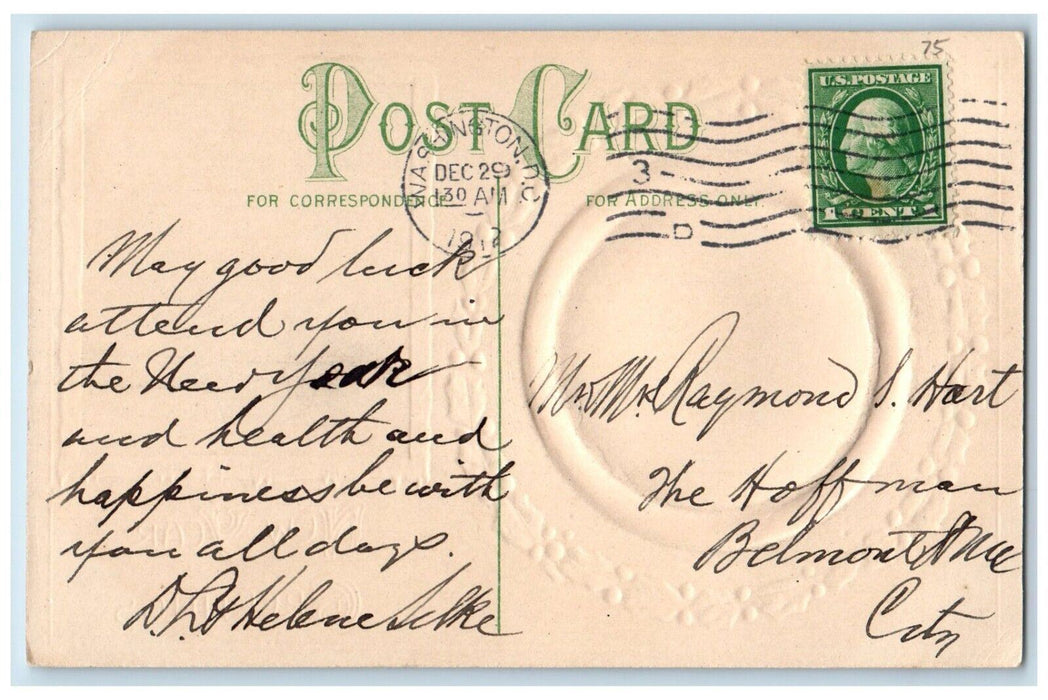 75
POST CARD
U.S. POSTAGE
1 CENT 1
WASHINGTON, D.C.
DEC 29
130 AM
1912
3
D
FOR CORRESPONDENCE
FOR ADDRESS ONLY
May good luck
attend you in
the New Year
and health and
happiness be with
you all days.
Helene
Raymond S. Hart
The Hoffman
Belmont Ave
City